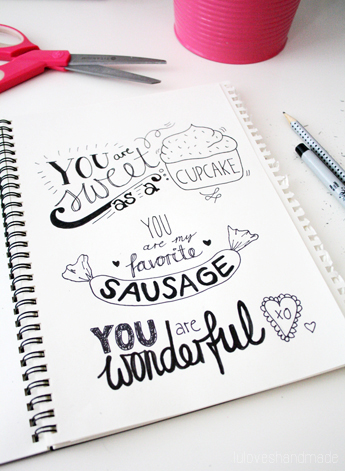 YOU are
sweet
as a
CUPCAKE
YOU
are my
favorite
SAUSAGE
YOU are
wonderful
XO